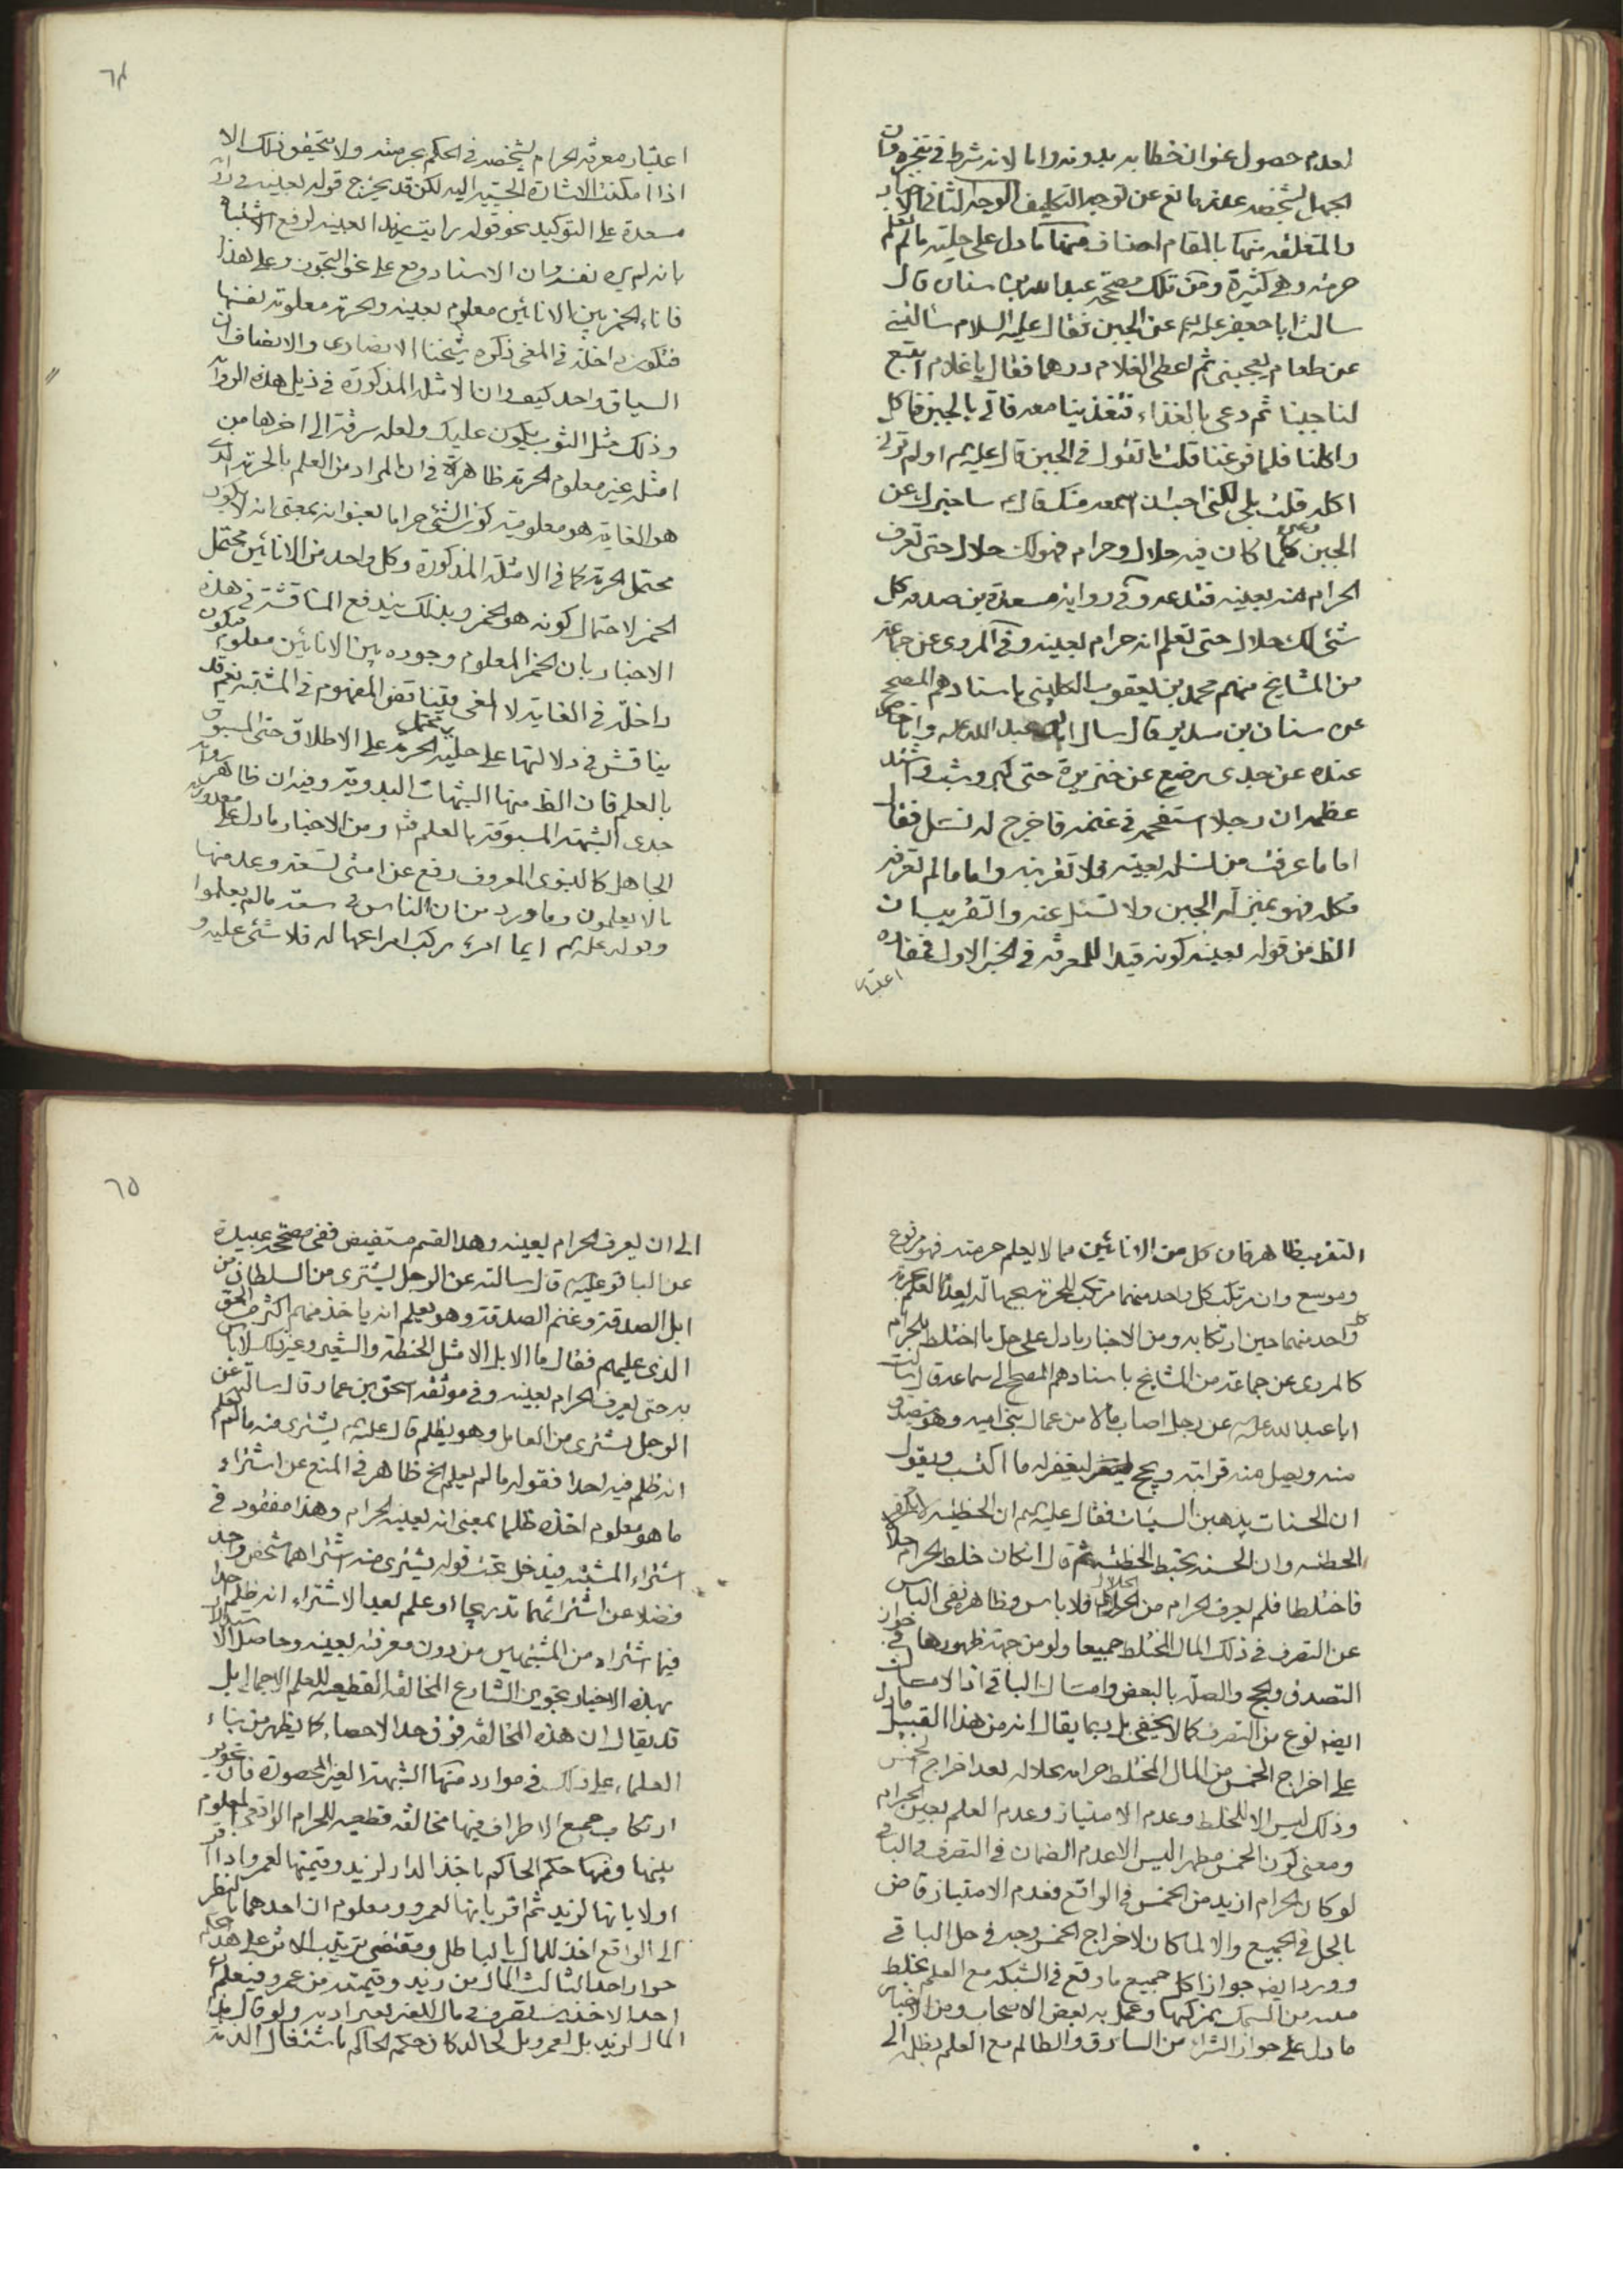 لعدم حصول عنوان خطابه بدونه واما لانه شرط في تنجزه فان
الجهل لشخصه عذر مانع عن توجه التكليف الوجه الثاني الاخبار
والمتعلقه منها بالمقام اصناف فمنها ما دل على حلية ما لم تعلم
حرمته وهي كثيرة ومن تلك مصححه عبدالله بن سنان قال
سالت ابا جعفر عليه السلم عن الجبن فقال عليه السلام سالتني
عن طعام يعجبني ثم اعطى الغلام درهما فقال يا غلام ابتع
لنا جبنا ثم دعى بالغذاء فتغذينا معه فاتي بالجبن فاكل
واكلنا فلما فرغنا قلت ما تقول في الجبن قال عليه السلم اولم ترني
اكله قلت بلى لكني احب ان اسمعه منك قال ساخبرك عن
الجبن وغيره كلما كان فيه حلال وحرام فهو لك حلال حتى تعرف
الحرام منه بعينه فتدعه وفي رواية مسعدة بن صدقه كل
شئ لك حلال حتى تعلم انه حرام بعينه وفي المروي عن جماعة
من المشايخ منهم محمد بن يعقوب الكليني باسنادهم المصحح
عن سنان بن سدير قال سال ابا عبد الله عليه وانا حاضر
عنده عن جدي رضع عن خنزيرة حتى كبر وشب واشتد
عظمه ان رجلا استفحمه في غنمه فاخرج له نسل فقال
اما ما عرفت من نسله بعينه فلا تقربنه واما ما لم تعرفه
فكله فهو بمنزلة الجبن ولا تسئل عنه والتقريب ان
الظ من قوله بعينه كونه قيدا للمعرفة في الخبر الاول فمفاده
اعتبار
٦٤
اعتبار معرفة الحرام بشخصه في الحكم بحرمته ولا يتحقق ذلك الا
اذا امكنت الاشارة الحسية اليه لكن قد يخرج قوله بعينه في رواية
مسعدة على التوكيد نحو قوله رايت زيدا بعينه لرفع اشتباه
بانه لم يره نفسه وان الاسناد وقع على نحو التجوز وعلى هذا
فاناء الخمر بين الانائين معلوم بعينه والحرمة معلومة بنفسها
فتكون داخلة في المغى ذكره شيخنا الانصاري والانصاف ان
السياق واحد كيف وان الامثلة المذكورة في ذيل هذه الرواية
وذلك مثل الثوب يكون عليك ولعله سرقة الى اخرها من
امثلة غير معلوم الحرمة ظاهرة في ان المراد من العلم بالحرمة الذي
هو الغاية هو معلومية كون الشئ حراما بعنوانه بمعنى انه لا يكون
محتمل الحرمة كما في الامثلة المذكورة وكل واحد من الانائين محتمل
الخمر لاحتمال كونه هو الخمر وبذلك يندفع المناقشة في هذه
الاخبار بان الخمر المعلوم وجوده بين الانائين معلوم فتكون
داخلة في الغاية لا المغى فيتناقض المفهوم في المشتبه نعم قد
يناقش في دلالتها على حلية محتمل الحرمة على الاطلاق حتى المسبوق
بالعلم فان الظ منها الشبهات البدوية وفيه ان ظاهر رواية
جدي الشبهة المسبوقة بالعلم فتد ومن الاخبار ما دل على معذورية
الجاهل كالنبوي المعروف رفع عن امتي تسعة وعد منها
ما لا يعلمون وما ورد من ان الناس في سعة ما لم يعلموا
وقوله عليه السلم ايما امرء ركب امرا بجهالة فلا شئ عليه و
التقريب ظاهر فان كل من الانائين مما لا يعلم حرمته فهو مرفوع
وموسع وان مرتكب كل واحد منهما مرتكب للحرمة بجهالة لعدم العلم بحرمة
كل واحد منهما حين ارتكابه ومن الاخبار ما دل على حل ما اختلط بالحرام
كالمروي عن جماعة من المشايخ باسنادهم المصحح الى سماعة قال سالت
ابا عبد الله عليه عن رجل اصاب مالا من عمال بني امية وهو يتصدق
منه ويصل منه قرابته ويحج ليغفر له ما اكتسب ويقول
ان الحسنات يذهبن السيئات فقال عليه السلم ان الخطيئة لا تكفر
الخطيئة وان الحسنة تحبط الخطيئة ثم قال ان كان خلط الحرام حلالا
فاختلطا فلم يعرف الحرام من الحلال فلا باس وظاهره نفى الباس
عن التصرف في ذلك المال المختلط جميعا ولو من جهة ظهورها في جواز
التصدق والحج والصلة بالبعض وامساك الباقي اذ الامساك
ايضه نوع من التصرف كما لا يخفى بل ربما يقال انه من هذا القبيل ما دل
على اخراج الخمس من المال المختلط حرامه بحلاله بعد اخراج الخمس
وذلك ليس الا للخلط وعدم الامتياز وعدم العلم بعين الحرام
ومعنى كون الخمس مطهرا ليس الا عدم الضمان في التصرف والباقي
لو كان الحرام ازيد من الخمس في الواقع فعدم الامتياز قاض
بالحل في الجميع والا لما كان لاخراج الخمس وجه في حل الباقي
وورد ايضه جواز اكل جميع ما وقع في الشبكة مع العلم بخلط
من السمك بمزكيها وعمل به بعض الاصحاب ومن الاخبار
ما دل على جواز الشراء من السارق والظالم مع العلم بظلمه الى
٦٥
الى ان يعرف الحرام بعينه وهذا القسم مستفيض ففي مصححه عبيدة
عن الباقر عليه قال سالته عن الرجل يشتري من السلطان من
ابل الصدقة وغنم الصدقة وهو يعلم انه ياخذ منهم اكثر من الحق
الذي عليهم فقال ما الابل الا مثل الحنطة والشعير وغير ذلك لا باس
به حتى يعرف الحرام بعينه وفي موثقه اسحق بن عمار قال سالته عن
الرجل يشتري من العامل وهو يظلم قال عليه السلم يشتري منه ما لم يعلم
انه ظلم فيه احدا فقوله ما لم يعلم الخ ظاهر في المنع عن اشتراء
ما هو معلوم اخذه ظلما بمعنى انه بعينه الحرام وهذا مفقود في
اشتراء المشتبه فيدخل تحت قوله يشتري منه اشتراهما شخص واحد
فضلا عن اشترائهما تدريجا او علم بعد الاشتراء انه ظلم احدا
فيما اشتراه من المشتبهين من دون معرفته بعينه وحاصل الاستدلال
بهذه الاخبار تجويز الشارع المخالفة القطعيه للعلم الاجمالي بل
قد يقال ان هذه المخالفة فوق حد الاحصاء كما يظهر من بناء
العلماء على ذلك في موارد منها الشبهة الغير المحصورة فان تجويز
ارتكاب جميع الاطراف فيها مخالفة قطعيه للحرام الواقعي المعلوم
بينها ومنها حكم الحاكم باخذ الدار لزيد وقيمتها لعمرو اذا اقر
اولا بانها لزيد ثم اقر بانها لعمرو ومعلوم ان احدهما بالنظر
الى الواقع اخذ للمال بالباطل ومقتضى ترتيب الاثر على هذا الحكم
جواز اخذ الثالث المال من زيد وقيمته من عمرو فيعلم
احد الاخذين تصرف في مال الغير بغير اذنه ولو قال هذا
المال لزيد بل لعمرو بل لخالد كان حكم الحاكم باشتغال الذمة